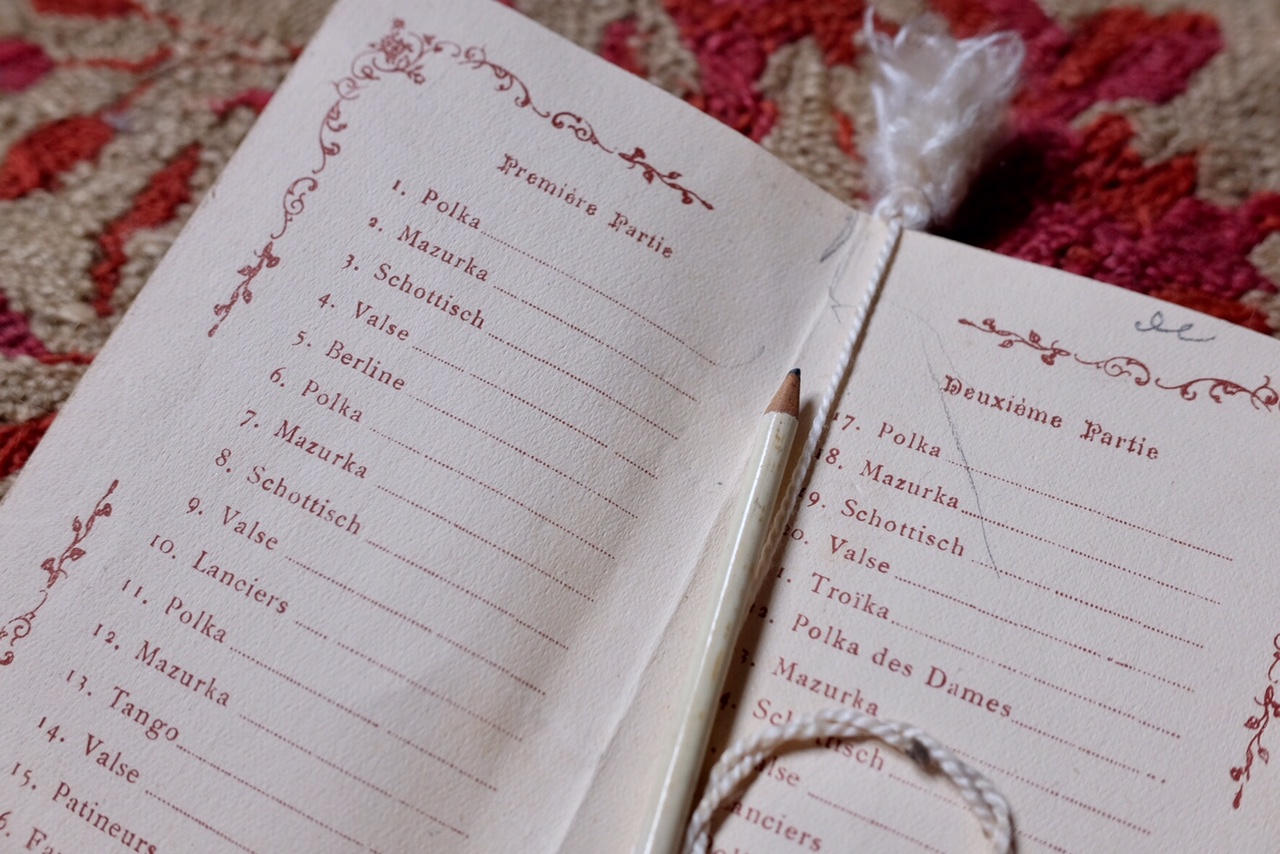 Premiére Partie
1. Polka
2. Mazurka
3. Schottisch
4. Valse
5. Berline
6. Polka
7. Mazurka
8. Schottisch
9. Valse
10. Lanciers
11. Polka
12. Mazurka
13. Tango
14. Valse
15. Patineurs
Deuxiéme Partie
17. Polka
18. Mazurka
19. Schottisch
20. Valse
Troïka
Polka des Dames
Mazurka
Lanciers